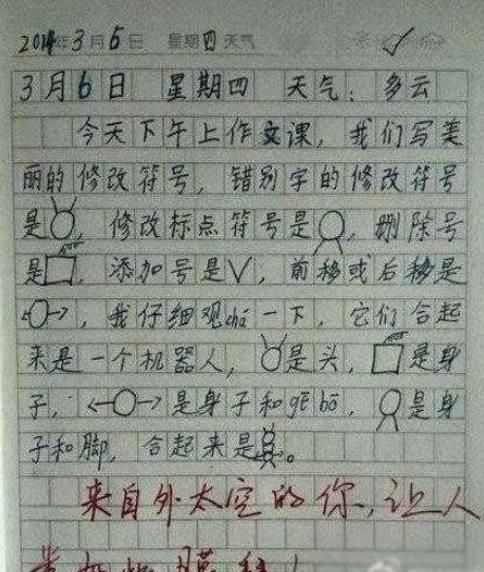 2014年3月6日 星期四天气
3月6日 星期四 天气：多云
今天下午上作文课，我们写美
丽的修改符号，错别字的修改符号
是，修改标点符号是，删除号
是，添加号是∨，前移或后移是
←○→，我仔细观chá一下，它们合起
来是一个机器人，是头，是身
子，←○→是身子和gē bō，是身
子和脚，合起来是。
来自外太空的你，让人